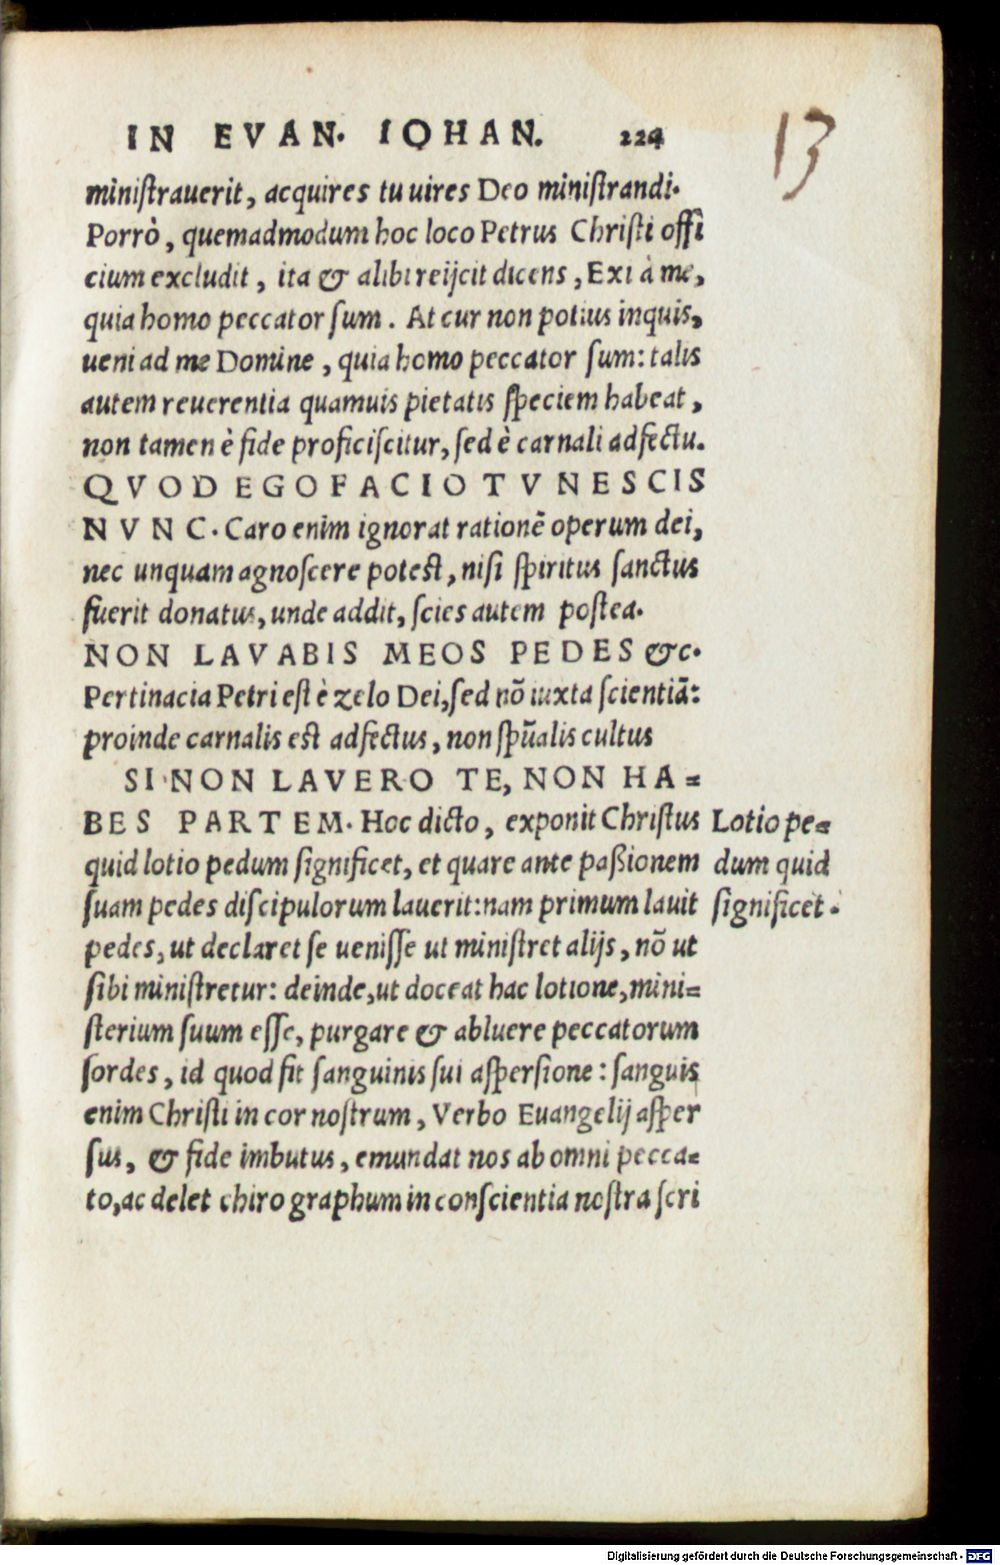 IN EVAN. IOHAN. 224
13
ministrauerit, acquires tu uires Deo ministrandi.
Porrò, quemadmodum hoc loco Petrus Christi offi
cium excludit, ita & alibi reijcit dicens, Exi à me,
quia homo peccator sum. At cur non potius inquis,
ueni ad me Domine, quia homo peccator sum: talis
autem reuerentia quamuis pietatis speciem habeat,
non tamen è fide proficiscitur, sed è carnali adfectu.
QVOD EGO FACIO TV NESCIS
NVNC. Caro enim ignorat rationẽ operum dei,
nec unquam agnoscere potest, nisi spiritus sanctus
fuerit donatus, unde addit, scies autem postea.
NON LAVABIS MEOS PEDES &c.
Pertinacia Petri est è zelo Dei, sed nõ iuxta scientiã:
proinde carnalis est adfectus, non spũalis cultus
SI NON LAVERO TE, NON HA=
BES PARTEM. Hoc dicto, exponit Christus
quid lotio pedum significet, et quare ante paßionem
suam pedes discipulorum lauerit: nam primum lauit
pedes, ut declaret se uenisse ut ministret alijs, nõ ut
sibi ministretur: deinde, ut doceat hac lotione, mini=
sterium suum esse, purgare & abluere peccatorum
sordes, id quod fit sanguinis sui aspersione: sanguis
enim Christi in cor nostrum, Verbo Euangelij asper
sus, & fide imbutus, emundat nos ab omni pecca=
to, ac delet chirographum in conscientia nostra scri
Lotio pe=
dum quid
significet.
Digitalisierung gefördert durch die Deutsche Forschungsgemeinschaft - DFG